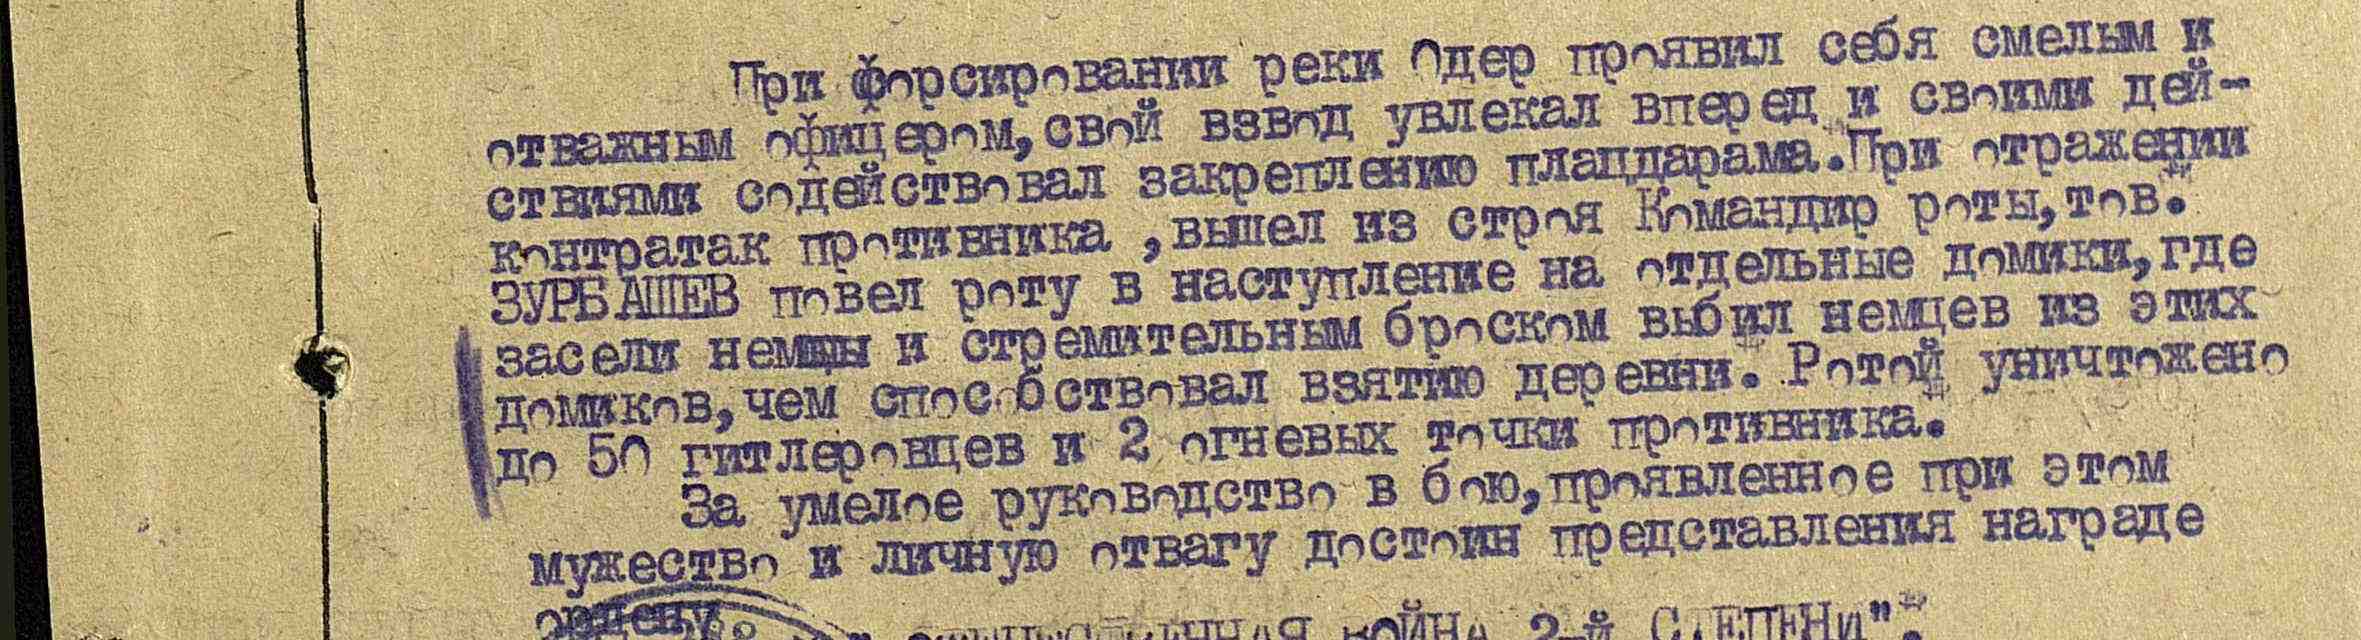 При форсировании реки Одер проявил себя смелым и
отважным офицером, свой взвод увлекал вперед и своими дей-
ствиями содействовал закреплению плацдарама. При отражении
контратак противника , вышел из строя Командир роты, тов.
ЗУРБАШЕВ повел роту в наступление на отдельные домики, где
засели немцы и стремительным броском выбил немцев из этих
домиков, чем способствовал взятию деревни. Ротой уничтожено
до 50 гитлеровцев и 2 огневых точки противника.
За умелое руководство в бою, проявленное при этом
мужество и личную отвагу достоин представления награде
ордену " ОТЕЧЕСТВЕННАЯ ВОЙНА 2-й СТЕПЕНИ".